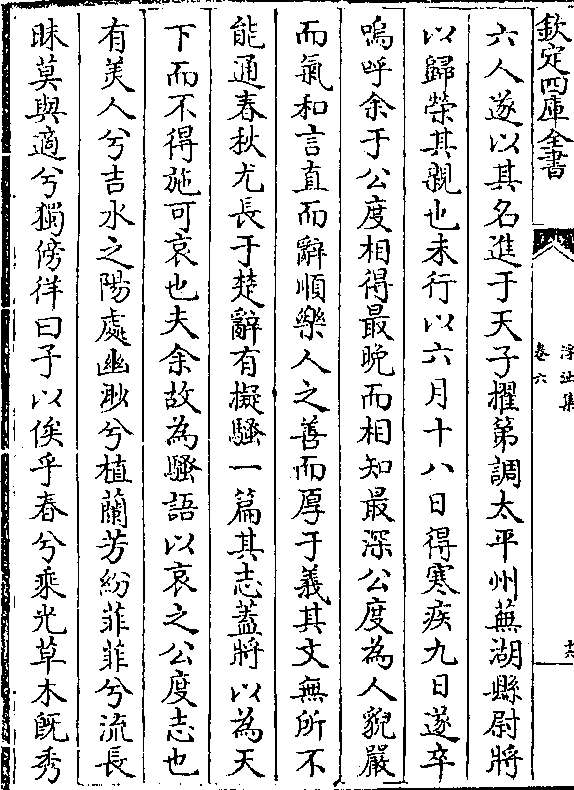 欽定四庫全書
浮沚集
卷六
六人遂以其名進于天子擢第調太平州蕪湖縣尉將
以歸榮其親也未行以六月十八日得寒疾九日遂卒
嗚呼余于公度相得最晚而相知最深公度為人貌嚴
而氣和言直而辭順樂人之善而厚于義其文無所不
能通春秋尤長于楚辭有擬騷一篇其志蓋將以為天
下而不得施可哀也夫余故為騷語以哀之公度志也
有美人兮吉水之陽處幽耿兮植蘭芳紛菲菲兮流長
昧莫與適兮獨傍徉曰予以俟乎春兮乘光草木既秀